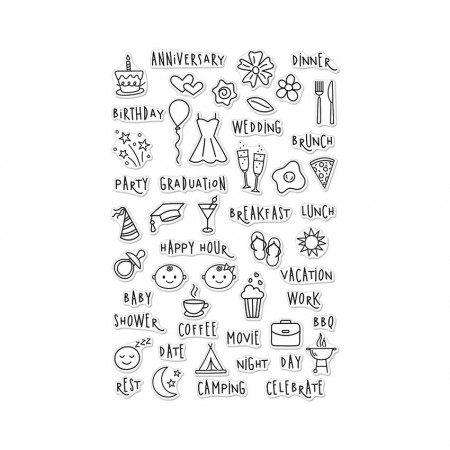 ANNIVERSARY
DINNER
BIRTHDAY
WEDDING
BRUNCH
PARTY
GRADUATION
BREAKFAST
LUNCH
HAPPY HOUR
VACATION
BABY
WORK
SHOWER
COFFEE
MOVIE
BBQ
zzz
DATE
NIGHT
DAY
REST
CAMPING
CELEBRATE